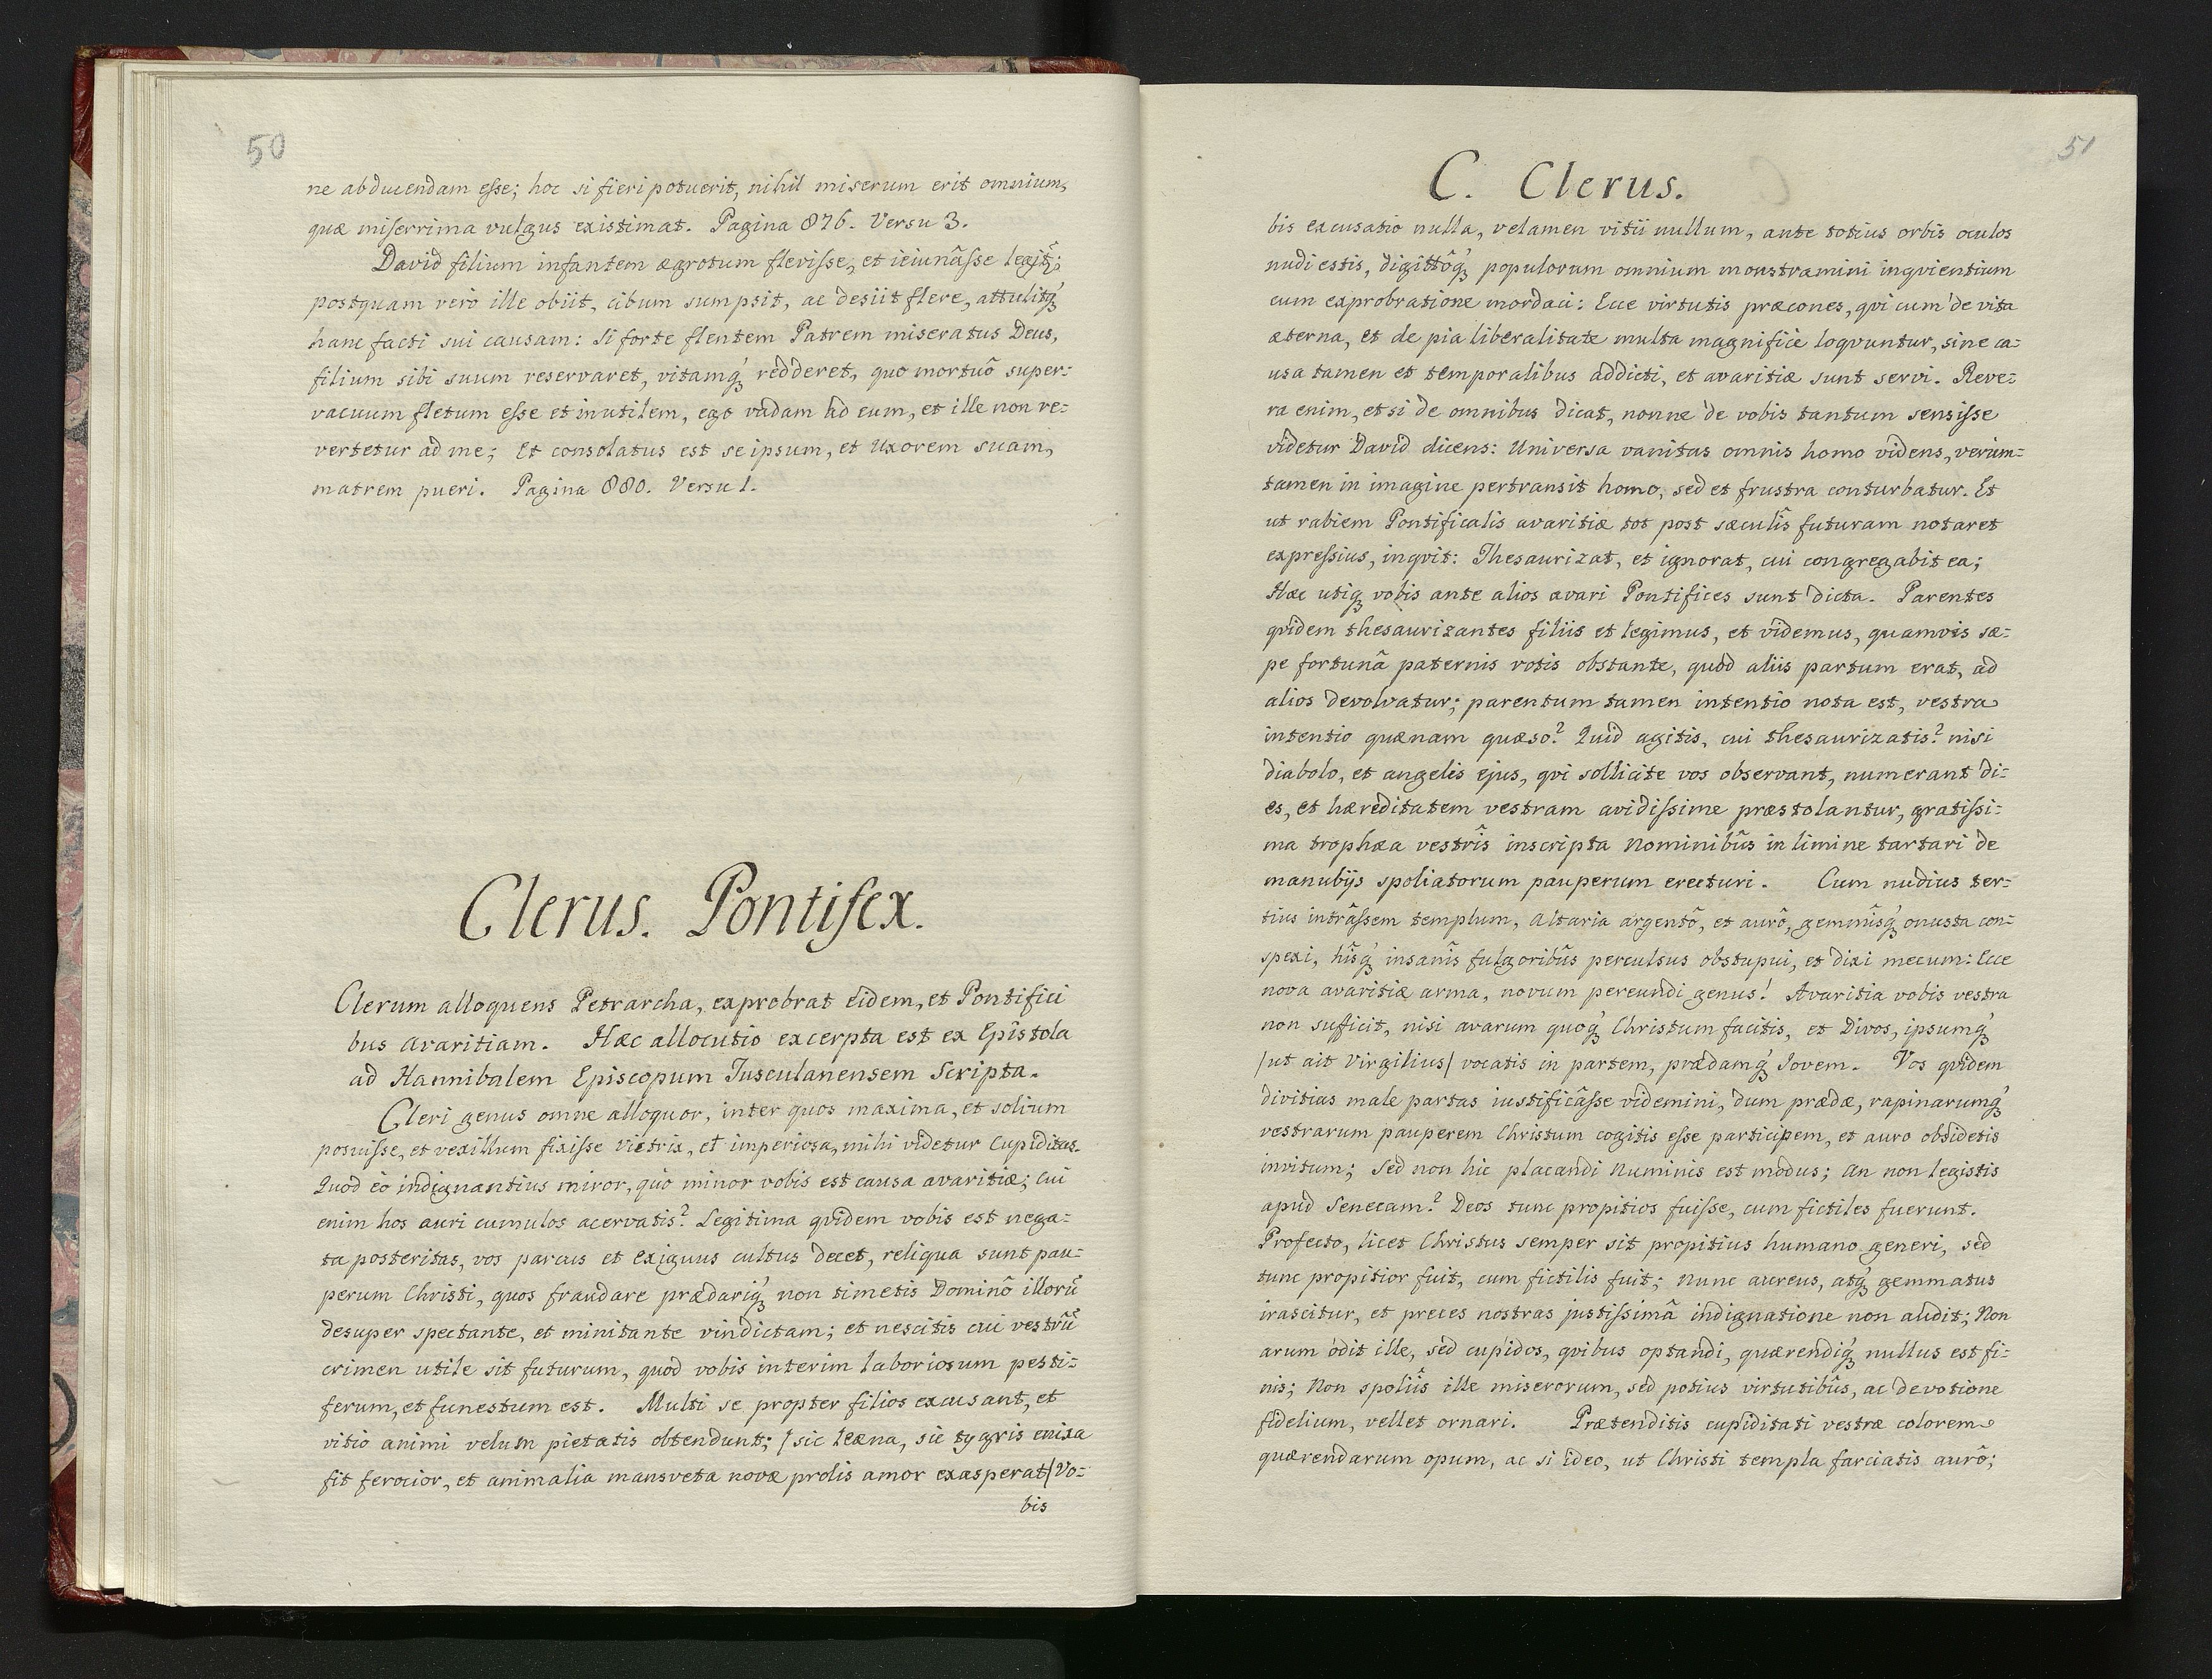 50
ne abducendam eſse; hoc si fieri potuerit, nihil miserum erit omnium,
quæ miſerrima vulgus existimat. Pagina 876. Versu 3.
David filium infantem ægrotum fleviſse, et ieiunâſse legit̃;
postquam verò ille obiit, cibum sumpsit, ac desiit flere, attulitq́ꝫ
hanc facti sui causam: Si forte flentem Patrem miseratus Deus,
filium sibi suum reservaret, vitamq́ꝫ redderet, quo mortuô super-
vacuum fletum eſse et inutilem, ego vadam ad eum, et ille non re-
vertetur ad me; Et consolatus est se ipsum, et Uxorem suam,
matrem pueri. Pagina 880. Versu 1.
Clerus. Pontifex.
Clerum alloquens Petrarcha, exprobrat eidem, et Pontifici
bus avaritiam. Hæc allocutio excerpta est ex Epistola
ad Hannibalem Episcopum Tusculanensem Scripta.
Cleri genus omne alloquor, inter quos maxima, et solium
posuiſse, et vexillum fixiſse Victrix, et imperiosa, mihi videtur Cupiditas.
Quod eò indignantius miror, quò minor vobis est causa avaritiæ; Cui
enim hos auri cumulos acervatis? Legitima qvidem vobis est nega-
ta posteritas, vos parcus et exiguus cultus decet, reliqua sunt pau-
perum Christi, quos fraudare prædariq́ꝫ non timetis Dominô illorũ
desuper spectante, et minitante vindictam; et nescitis cui vestrũ
crimen utile sit futurum, quod vobis interim laboriosum pesti-
ferum, et funestum est. Multi se propter filios excusant, et
vitio animi velum pietatis obtendunt; /sic leæna, sic tygris enixa
fit ferocior, et animalia mansveta novæ prolis amor exasperat/ Vo-
bis
51
C. Clerus.
bis excusatio nulla, velamen vitii nullum, ante totius orbis oculos
nudi estis, digittôq́ꝫ populorum omnium monstramini ingvientium
cum exprobratione mordaci: Ecce virtutis præcones, qvi cum de vita
æterna, et de pia liberalitate multa magnificè loqvuntur, sine ca-
usa tamen et temporalibus addicti, et avaritiæ sunt servi. Reve-
ra enim, etsi de omnibus dicat, nonne de vobis tantum sensiſse
videtur David dicens: Universa vanitas omnis homo videns, verum-
tamen in imagine pertransit homo, sed et frustra conturbatur. Et
ut rabiem Pontificalis avaritiæ tot post sæculîs futuram notaret
expreſsius, inqvit: Thesaurizat, et ignorat, cui congregabit ea;
Hæc utiqꝫ vobis ante alios avari Pontifices sunt dicta. Parentes
qvidem thesaurizantes filiis et legimus, et videmus, quamvis sæ-
pe fortunâ paternis votis obstante, quòd aliis partum erat, ad
alios devolvatur; parentum tamen intentio nota est, vestra
intentio quænam quæso? Quid agitis, cui thesaurizatis? nisi
diabolo, et angelis ejus, qvi sollicite vos observant, numerant di-
es, et hæreditatem vestram avidiſsime præstolantur, gratiſsi-
ma trophæa vestrîs inscripta Nominibûs in limine tartari de
manubijs spoliatorum pauperum erecturi. Cum nudius ter-
tius intrâſsem templum, Altaria argentô, et aurô, gemmîsq́ꝫ onusta con-
spexi, hîsq́ꝫ insanîs fulgoribûs perculsus obstupui, et dixi mecum: Ecce
nova avaritiæ arma, novum pereundi genus! Avaritia vobis vestra
non sufficit, nisi avarum quoq́ꝫ Christum facitis, et Divos, ipsumq́ꝫ
/ut ait Virgilius/ vocatis in partem, prædamq́ꝫ Jovem. Vos qvidem
divitias male partas iustificâſse videmini, dum prædæ, rapinarumq́ꝫ
vestrarum pauperem Christum cogitis eſse participem, et auro obsidetis
invitum; Sed non hic placandi Numinis est modus; an non legistis
apud Senecam? Deos tunc propitios fuiſse, cum fictiles fuerunt.
Profecto, licet Christus semper sit propitius humano generi, sed
tunc propitior fuit, cum fictilis fuit; Nunc aureus, atq́ꝫ gemmatus
irascitur, et preces nostras justiſsimâ indignatione non audit; Non
arum òdit ille, sed cupidos, qvibus optandi, quærendiq́ꝫ nullus est fi-
nis; Non spoliîs ille miserorum, sed potius virtutibûs, ac devotione
fidelium, vellet ornari. Prætenditis cupiditati vestræ colorem
quærendarum opum, ac si ideo, ut Christi templa farciatis aurô;